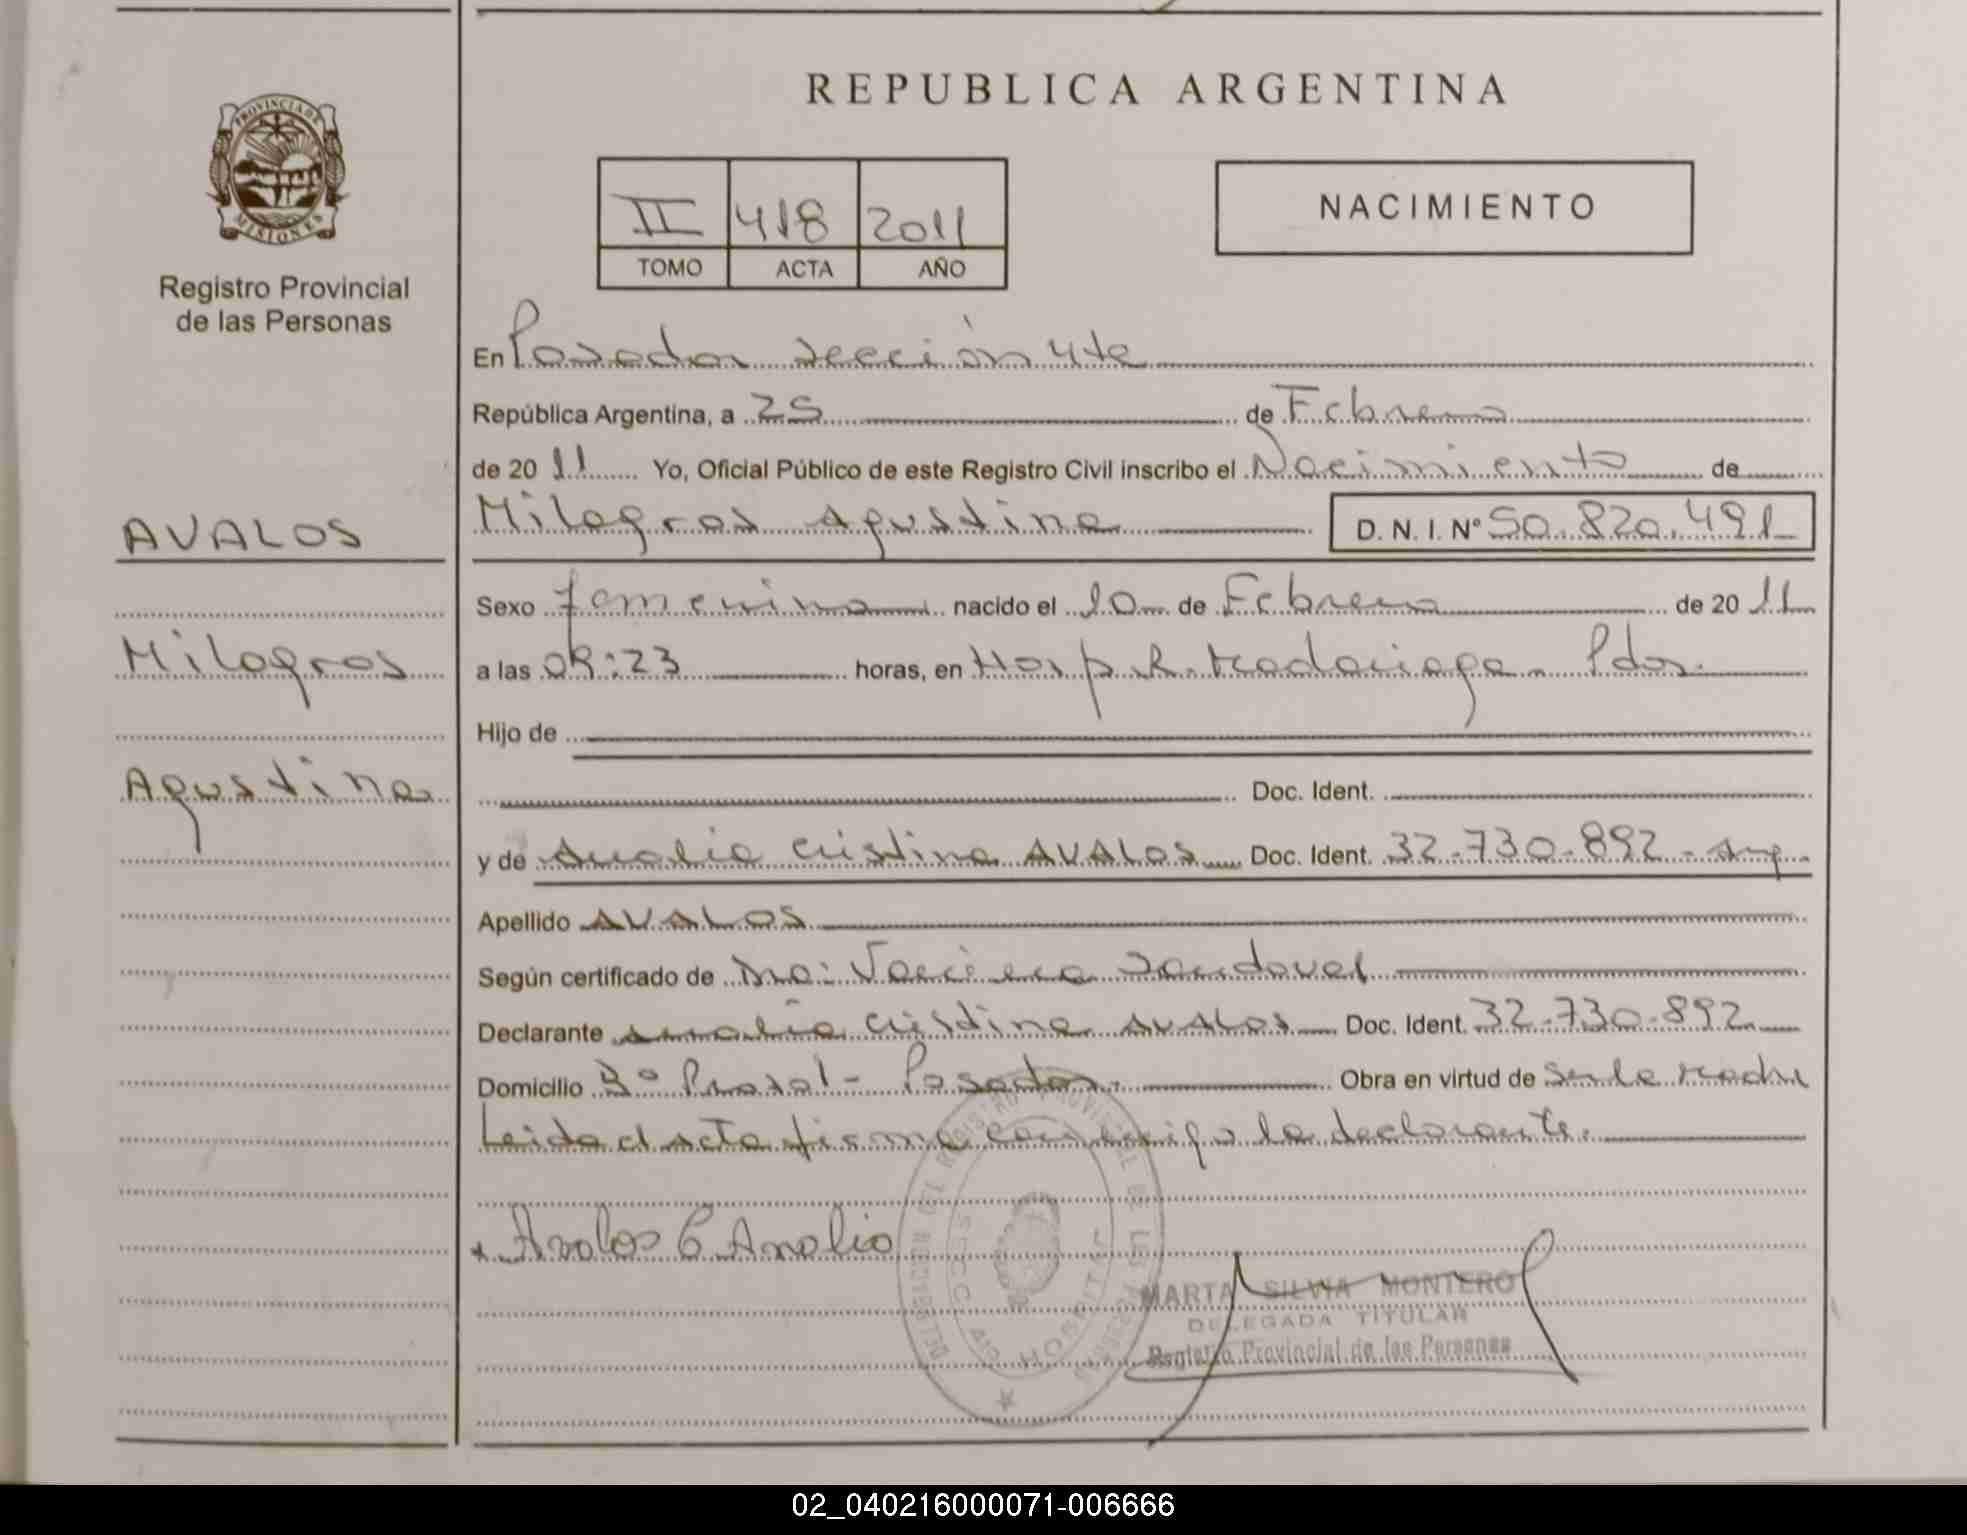 REPUBLICA ARGENTINA
PROVINCIA DE
MISIONES
Registro Provincial
de las Personas
II 418 2011
TOMO ACTA AÑO
NACIMIENTO
En Posadas sección 4ta
República Argentina, a 25 de Febrero
de 2011 Yo, Oficial Público de este Registro Civil inscribo el Nacimiento de
Milagros Agustina D. N. I. Nº 50.820.491
AVALOS
Milagros
Agustina
Sexo femenino nacido el 10 de Febrero de 2011
a las 09:23 horas, en Hosp. R. Madariaga - Pdas.
Hijo de
Doc. Ident.
y de Analia Cristina AVALOS Doc. Ident. 32.730.892 - Arg.
Apellido AVALOS
Según certificado de Dra: Sandoval
Declarante Analia Cristina AVALOS Doc. Ident. 32.730.892
Domicilio Bº Prosol - Posadas. Obra en virtud de ser la madre
Leida el acta firma conmigo la declarante.
Avalos C Analia
MARTA SILVIA MONTERO
DELEGADA TITULAR
Registro Provincial de las Personas
HOSPITAL
02_040216000071-006666